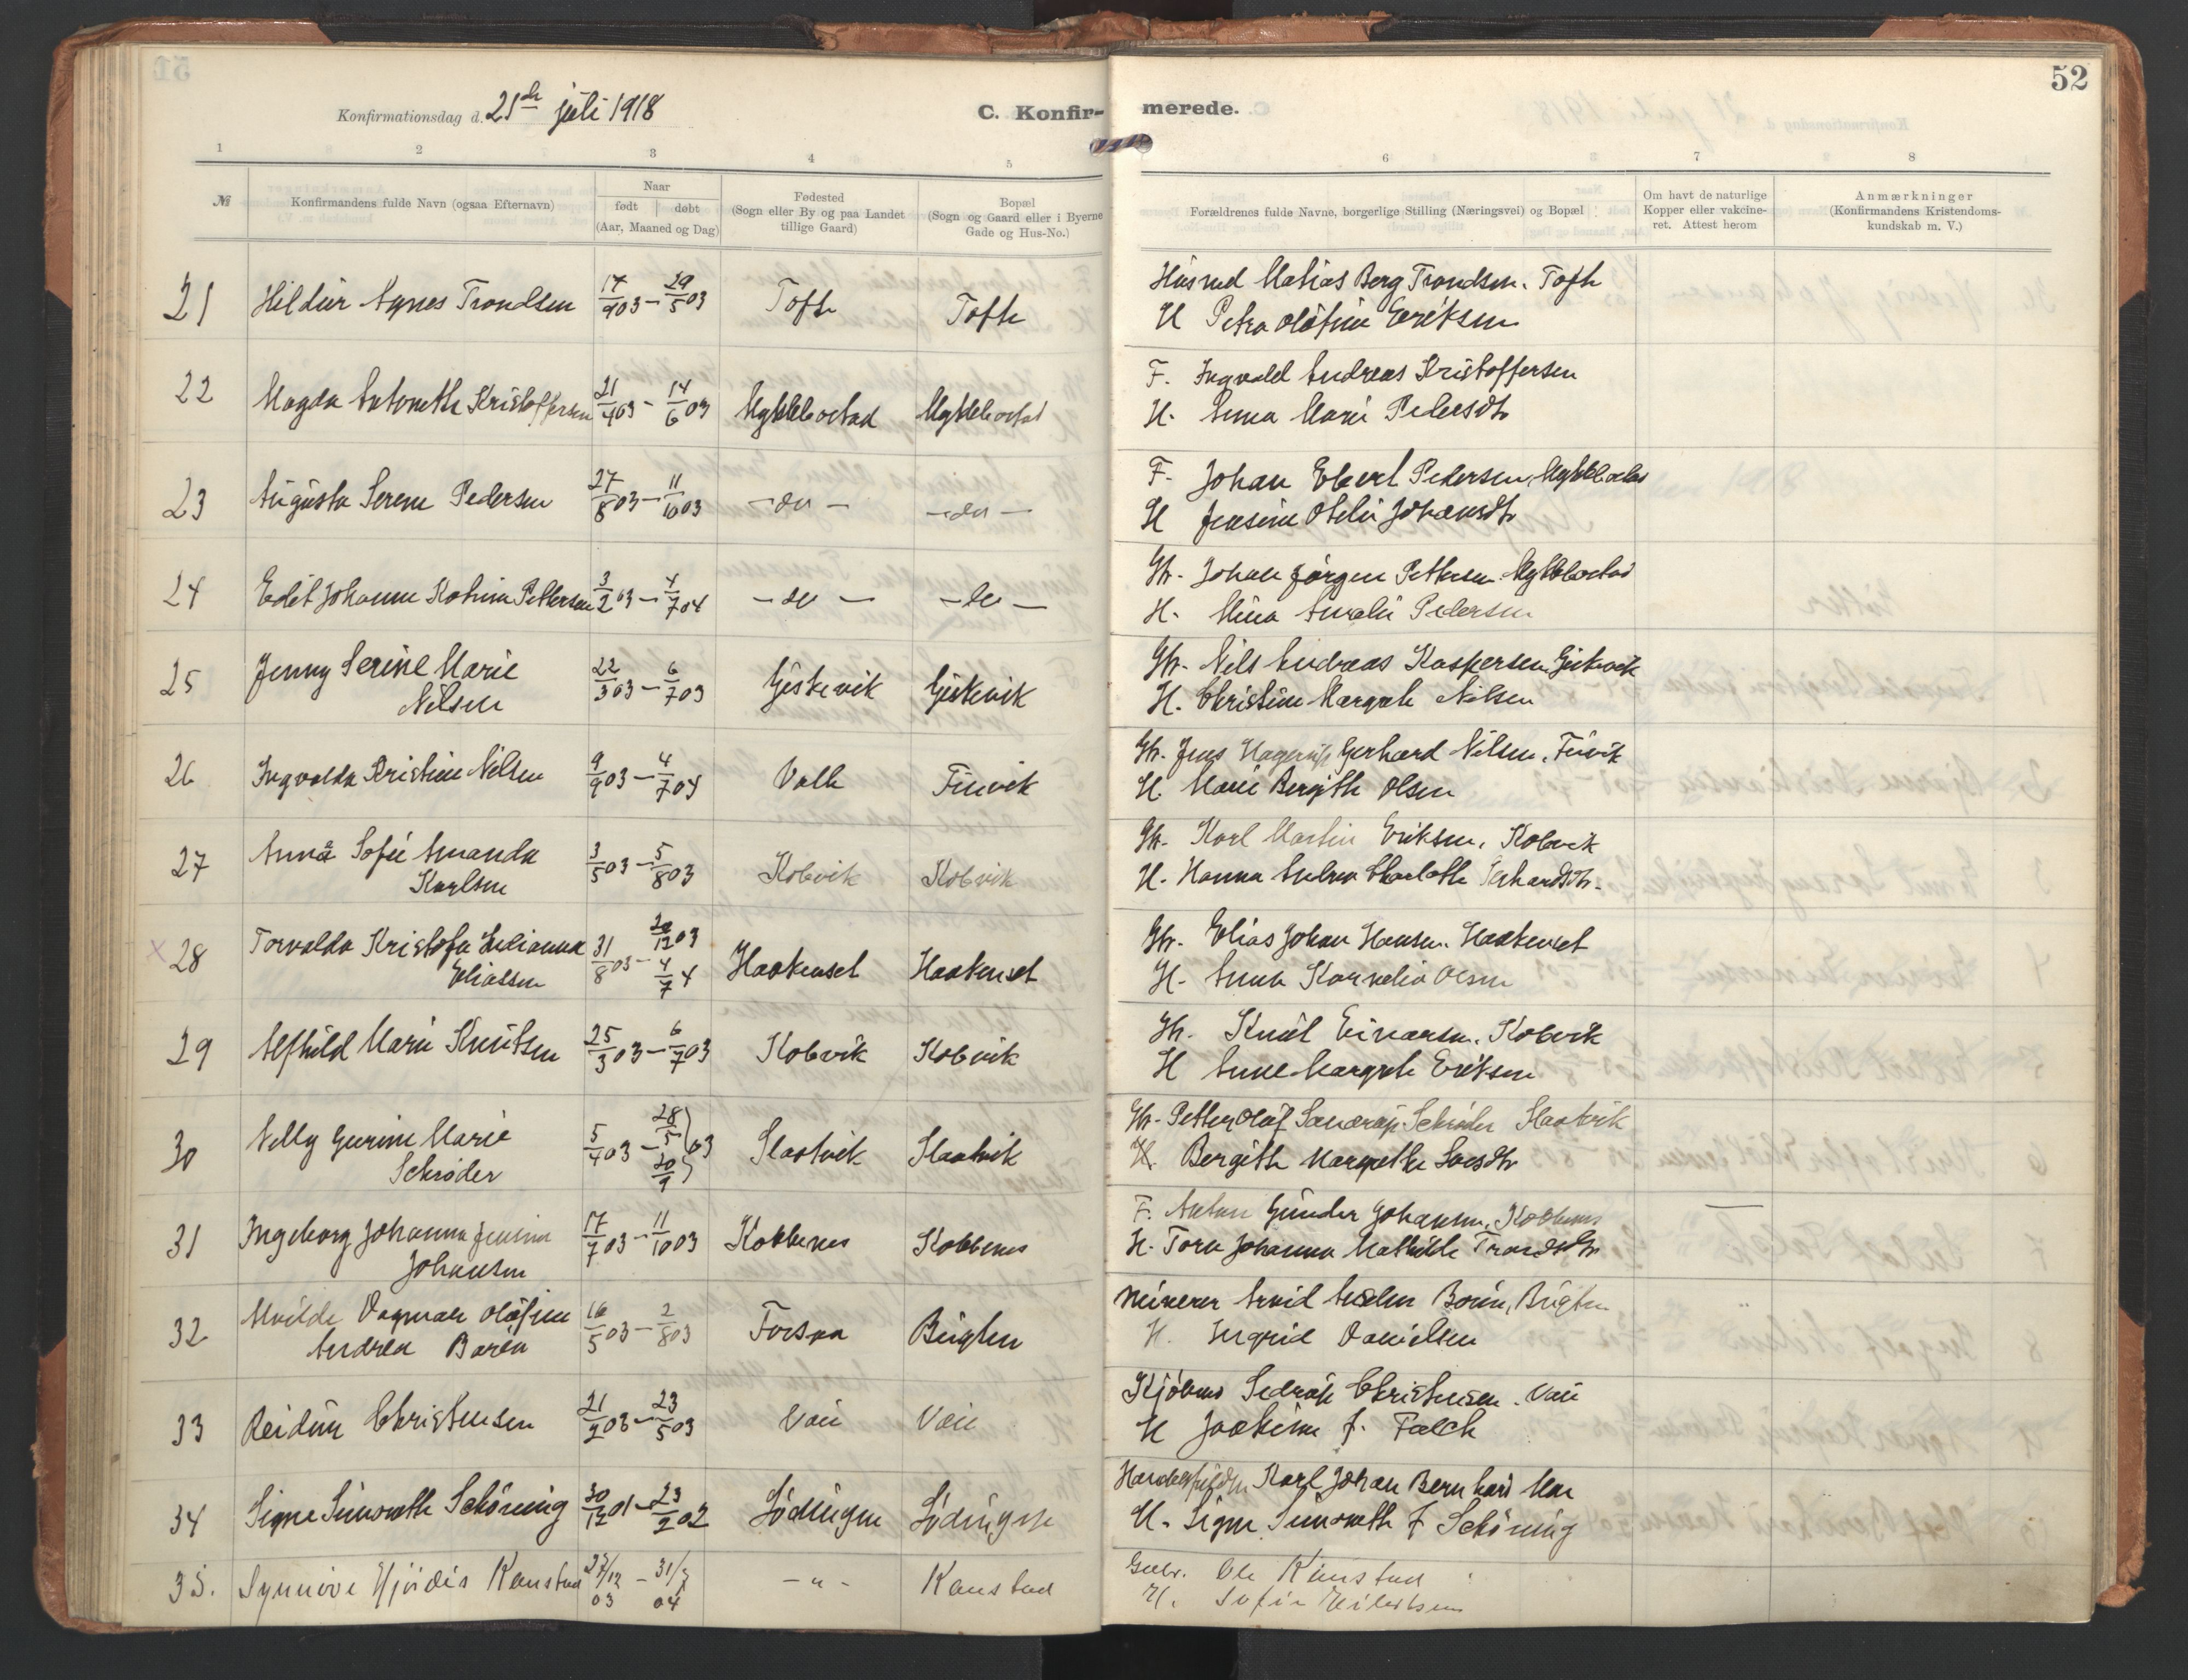 52
Konfirmationsdag d. 21de juli 1918
C. Konfir- merede.
1 2 3 4 5 6 7 8
№ Konfirmandens fulde Navn (ogsaa Efternavn)
Naar
født døbt
(Aar, Maaned og Dag)
Fødested
(Sogn eller By og paa Landet
tillige Gaard)
Bopæl
(Sogn og Gaard eller i Byerne
Gade og Hus-No.)
Forældrenes fulde Navne, borgerlige Stilling (Næringsvei) og Bopæl
Om havt de naturlige
Kopper eller vakcine-
ret. Attest herom
Anmærkninger
(Konfirmandens Kristendoms-
kundskab m. V.)
21 Hildur Agnes Trondsen 17/9 03 — 29/5 03 Tofte Tofte Husmd Matias Berg Trondsen. Tofte
H Petra Olufine Eriksen
22 Magda Antonette Kristoffersen 21/4 03 - 14/6 03 Myklebostad Myklebostad F. Ingvald Andreas Kristoffersen
H. Anna Marie Pedersdtr
23 Augusta Serene Pedersen 27/8 03 — 11/10 03 — do — — do — F. Johan Ebert Pedersen, Myklebostad
H Jensine Otelie Johansdtr
24 Edit Johanne Katrine Pettersen 3/2 03 — 4/7 04 — do — — do — Gbr. Johan Jørgen Pettersen. Myklebostad
H. Mina Amalie Pedersen
25 Jenny Serine Marie
Nilsen 22/3 03 — 6/7 03 Geskevik Geskevik Gbr. Nils Andreas Kaspersen, Geskevik
H. Christine Margrete Nilsen
26 Ingvalda Kristine Nilsen 9/9 03 — 4/7 04 Valle Finvik Gbr. Jens Hagerup Gerhard Nilsen. Finvik
H. Marie Bergitte Olsen
27 Anna Sofie Amanda
Karlsen 3/5 03 — 5/8 03 Kobvik Kobvik Gbr. Karl Martin Eriksen, Kobvik
H. Hanna Andrea Charlotte
x 28 Torvalda Kristofa Julianna
Eliassen 31/8 03 — 20/12 03
4/7 4 Haakenset Haakenset Gbr. Elias Johan Hansen. Haakenset
H. Anna Kornelia Olsen
29 Alfhild Marie Knutsen 25/3 03 — 6/7 03 Kobvik Kobvik Gbr. Knut Einarsen. Kobvik
H Anne Margrete Eriksen
30 Nelly Gurine Marie
Schrøder 5/4 03 — 28/5 20/9 03 Slaatvik Slaatvik Gbr. Petter Oluf Schrøder Slaatvik
H. Bergitte Margrethe
31 Ingeborg Johanna Jensine
Johansen 17/7 03 — 11/10 03 Kobbenes Kobbenes F. Anton Gunder Johansen, Kobbenes —
H. Tora Johanna Mathilde
32 Dagmar Olufine
Andrea 16/5 03 — 2/8 03 Forsaa
H. Ingrid Danielsen
33 Reidun Christensen 21/2 03 — 23/5 03 Vaie Vaie Kjøbmd Sedrak Christensen. Vaie
H Joakime f. Falch
34 Signe Schöning 30/12 01 — 23/2 02 Lødingen Lødingen Karl Johan Bernhard
H. Signe f Schöning
35. Synnöve Hjördis Kanstad 27/12 03 — 31/7 04 — " — Kanstad Gbr. Ole Kanstad
H. Sofie